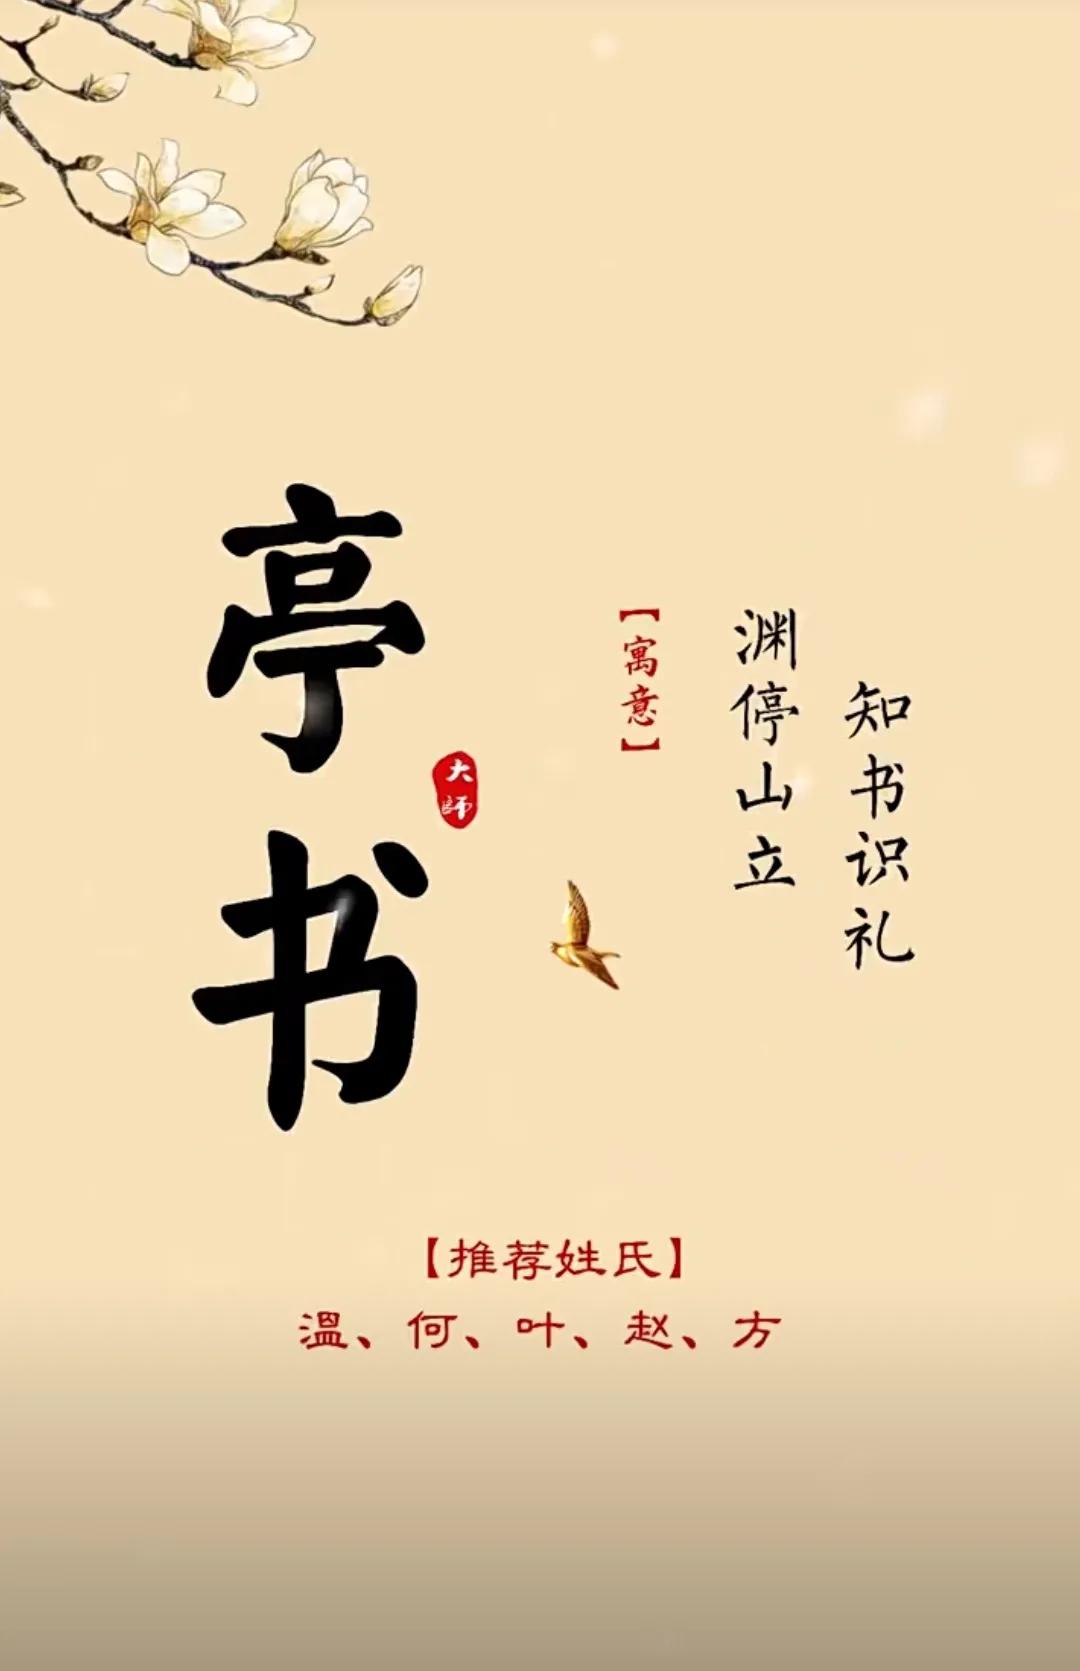 亭书
大師
【寓意】
渊停山立
知书识礼
【推荐姓氏】
温、何、叶、赵、方